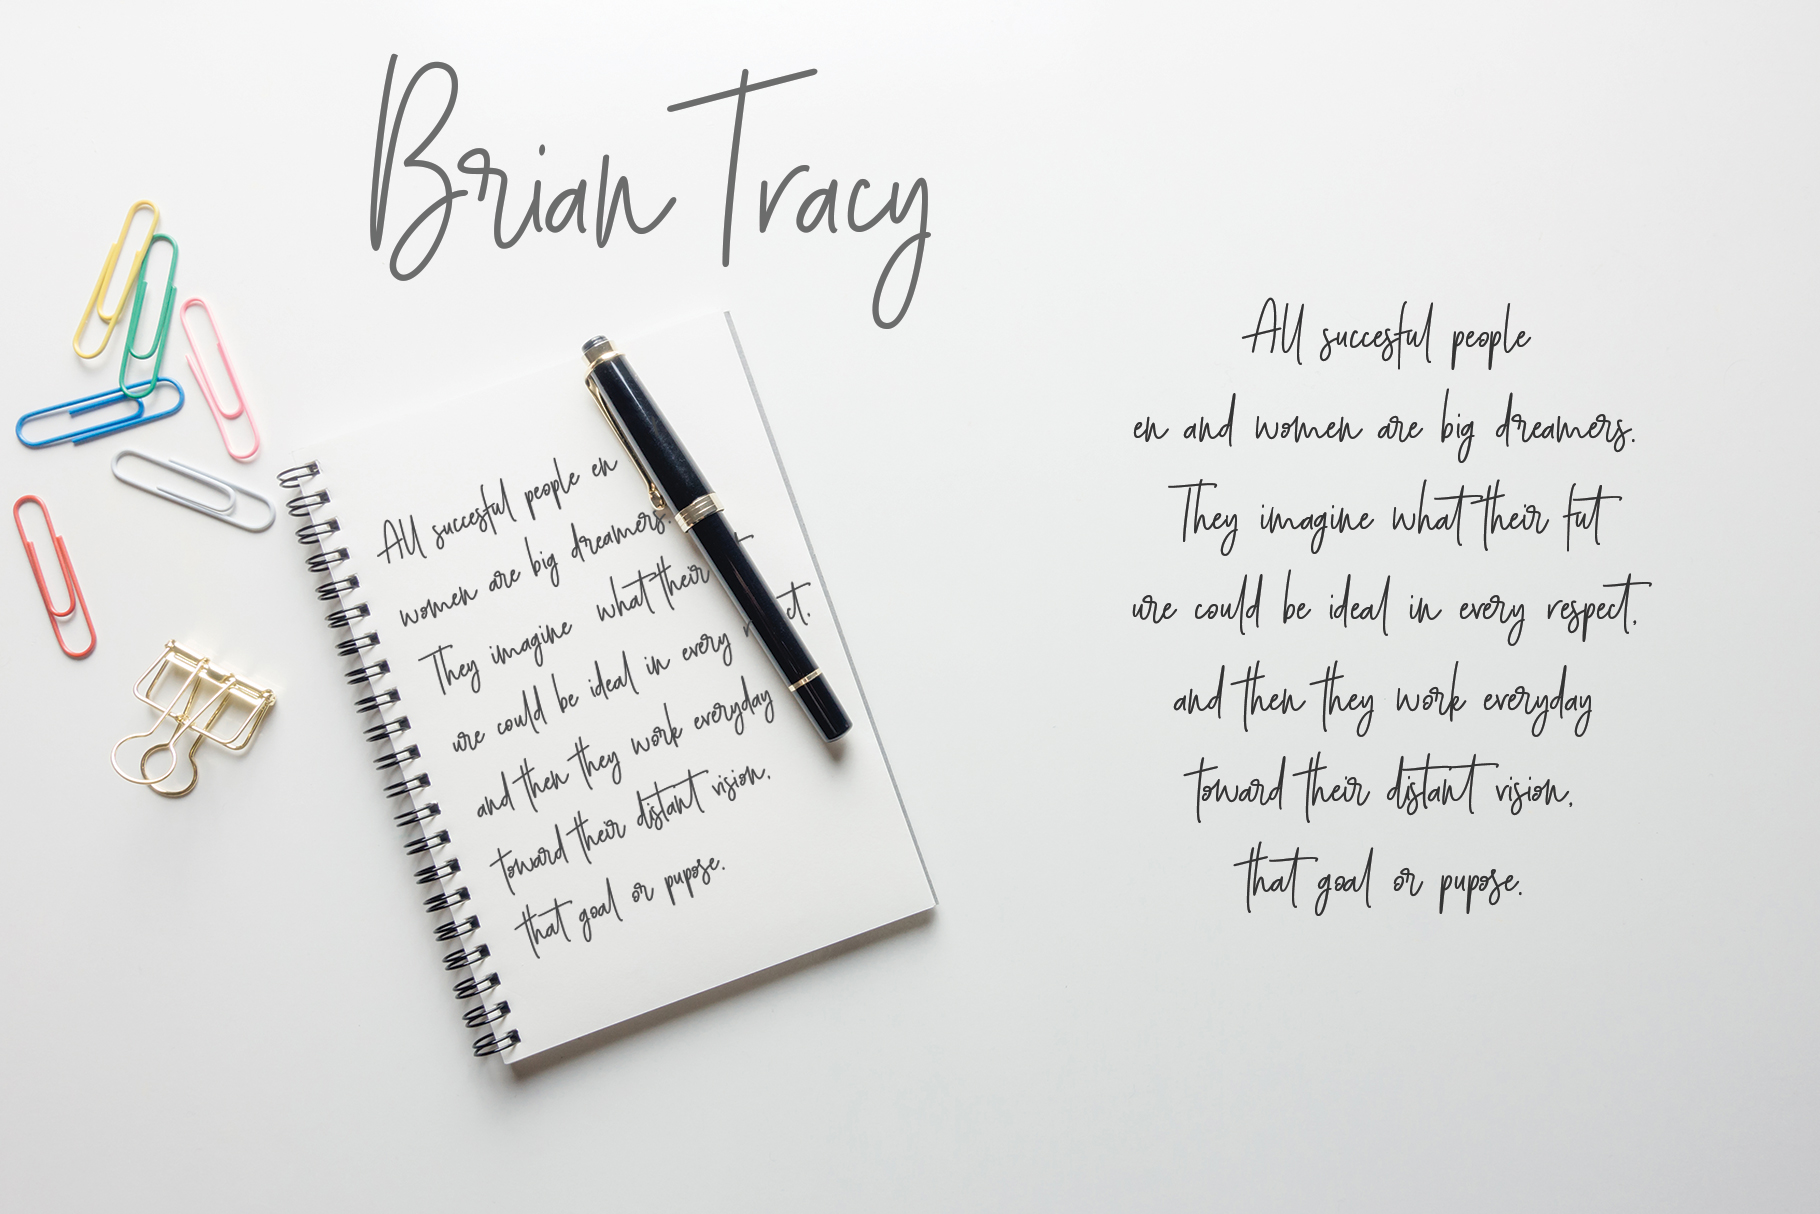 Brian Tracy
All succesful people en
women are big dreamers.
They imagine what their
ure could be ideal in every
and then they work everyday
toward their distant vision,
that goal or pupose.
All succesful people
en and women are big dreamers.
They imagine what their fut
ure could be ideal in every respect,
and then they work everyday
toward their distant vision,
that goal or pupose.